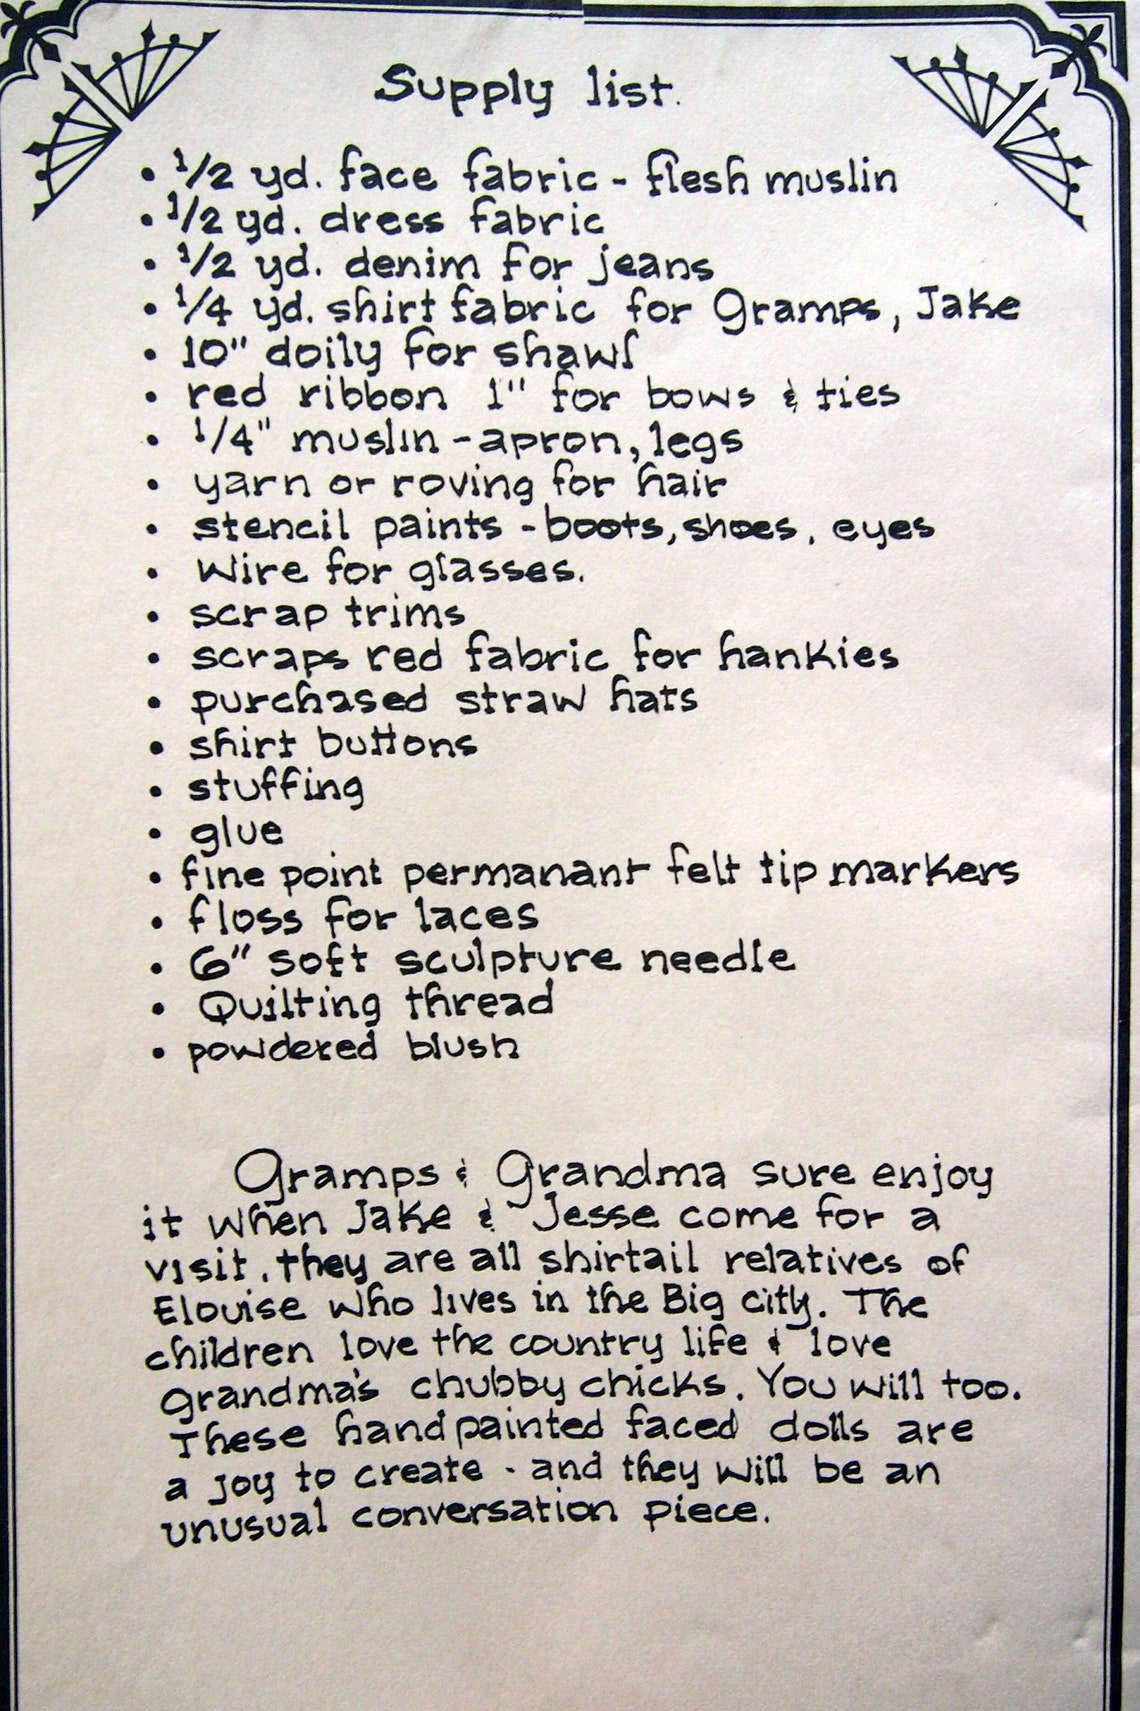 Supply list.
• 1/2 yd. face fabric - flesh muslin
• 1/2 yd. dress fabric
• 1/2 yd. denim for jeans
• 1/4 yd. shirt fabric for Gramps, Jake
• 10" doily for shawl
• red ribbon 1" for bows & ties
• 1/4" muslin - apron, legs
• yarn or roving for hair
• stencil paints - boots, shoes, eyes
• Wire for glasses.
• scrap trims
• scraps red fabric for hankies
• purchased straw hats
• shirt buttons
• stuffing
• glue
• fine point permanant felt tip markers
• floss for laces
• 6" soft sculpture needle
• Quilting thread
• powdered blush
Gramps & Grandma sure enjoy
it when Jake & Jesse come for a
visit. they are all shirtail relatives of
Elouise who lives in the Big city. The
children love the country life & love
grandma's chubby chicks. You will too.
These hand painted faced dolls are
a joy to create - and they will be an
unusual conversation piece.